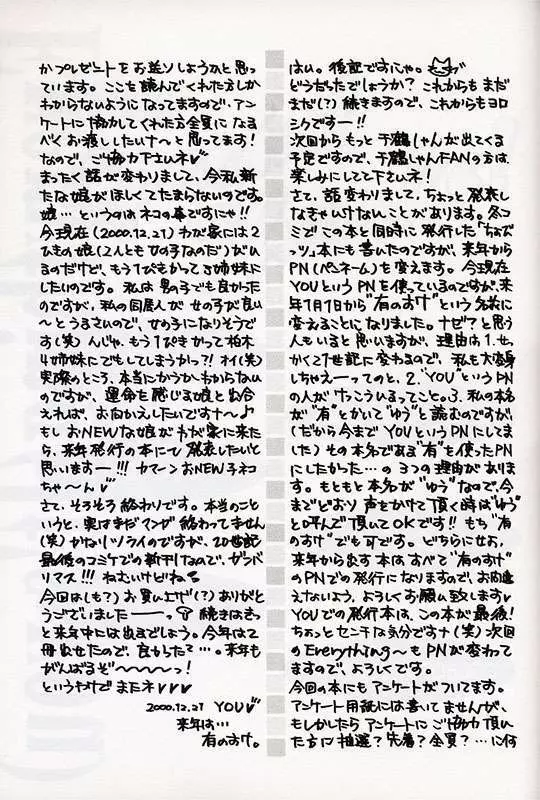 はい。後記ですにゃ。
どうだったでしょうか? これからもまだ
まだ(?)続きますので、これからもヨロ
シクですー!!
次回からもっと千鶴しゃんが出てくる
予定ですので、千鶴しゃんFANの方は
楽しみにしてて下さいネ!
さて、話変わりまして、ちょっと発表し
なきゃいけないことがあります。冬コ
ミでこの本と同時に発行した「ちょび
っツ」本にも書いたのですが、来年から
PN(ペンネーム)を変えます。今現在
YOUというPNを使っているのですが、来
年1月1日から"有のすけ"という名前に
変えることになりました。ナゼ?と思う
人もいると思いますが、理由は1.せっ
かく21世紀に変わるので、私も大変身
しちゃえーってのと、2."YOU"というPN
の人がけっこういるってこと。3.私の本名
が"有"とかいて"ゆう"と読むのですが、
(だから今までYOUというPNにしてま
した)その本名である"有"を使ったPN
にしたかった…の3つの理由がありま
す。もともと本名が"ゆう"なので、今
までどおり声をかけて頂く時は"ゆう"
と呼んで頂いてOKです!! もち"有
のすけ"でも可です。どちらにせよ、
来年から出す本はすべて"有のすけ"
のPNでの発行になりますので、お間違
えないよう、よろしくお願い致します♥
YOUでの発行本は、この本が最後!
ちょっとセンチな気分ですナ(笑)次回
のEverything〜もPNが変わって
ますので、よろしくです。
今回の本にもアンケートがついてます。
アンケート用紙には書いてませんが、
もしかしたらアンケートにご協力頂い
た方に抽選?先着?全員?…に何
かプレゼントをお送りしようかと思っ
ています。ここを読んでくれた方しか
わからないようになってますので、アン
ケートに協力してくれた方全員になる
べくお渡ししたいナ〜と思ってます!
なので、ご協力下さいネ♥
まったく話が変わりまして、今私新
たな娘がほしくてたまらないのです。
娘…というのはネコの事ですにゃ!!
今現在(2000.12.21)わが家には2
ひきの娘(2人とも女の子なのだ)がい
るのだけど、もう1ぴきかって3姉妹に
したいのです。私は男の子でも良かった
のですが、私の同居人が女の子が良い
〜とうるさいので、女の子になりそうで
す(笑)んじゃ、もう1ぴきかって柏木
4姉妹にでもしてしまうかっ?!オイ(笑)
実際のところ、本当にかうかわからない
のですが、運命を感じる娘と出会
えれば、お向かえしたいですナ〜♪
もしおNEWな娘がわが家に来た
ら、来年発行の本にて発表したいと
思いますー!!! カマーンおNEW子ネコ
ちゃ〜ん♥
さて、そろそろ終わりです。本当のこと
いうと、実はまだマンガ終わってません
(笑)かなりツライのですが、20世紀
最後のコミケでの新刊なので、ガンバ
リマス!!! ねむいけどね
今回は(も?)お買い上げ(?)ありがと
うございましたーーっ 続きはきっ
と来年中には出るでしょう。今年は2
冊出せたので、良かったて…。来年も
がんばるぞ〜〜〜〜っ!
というわけでまたネ♥♥♥
2000.12.21 YOU♥
来年は…
有のすけ。